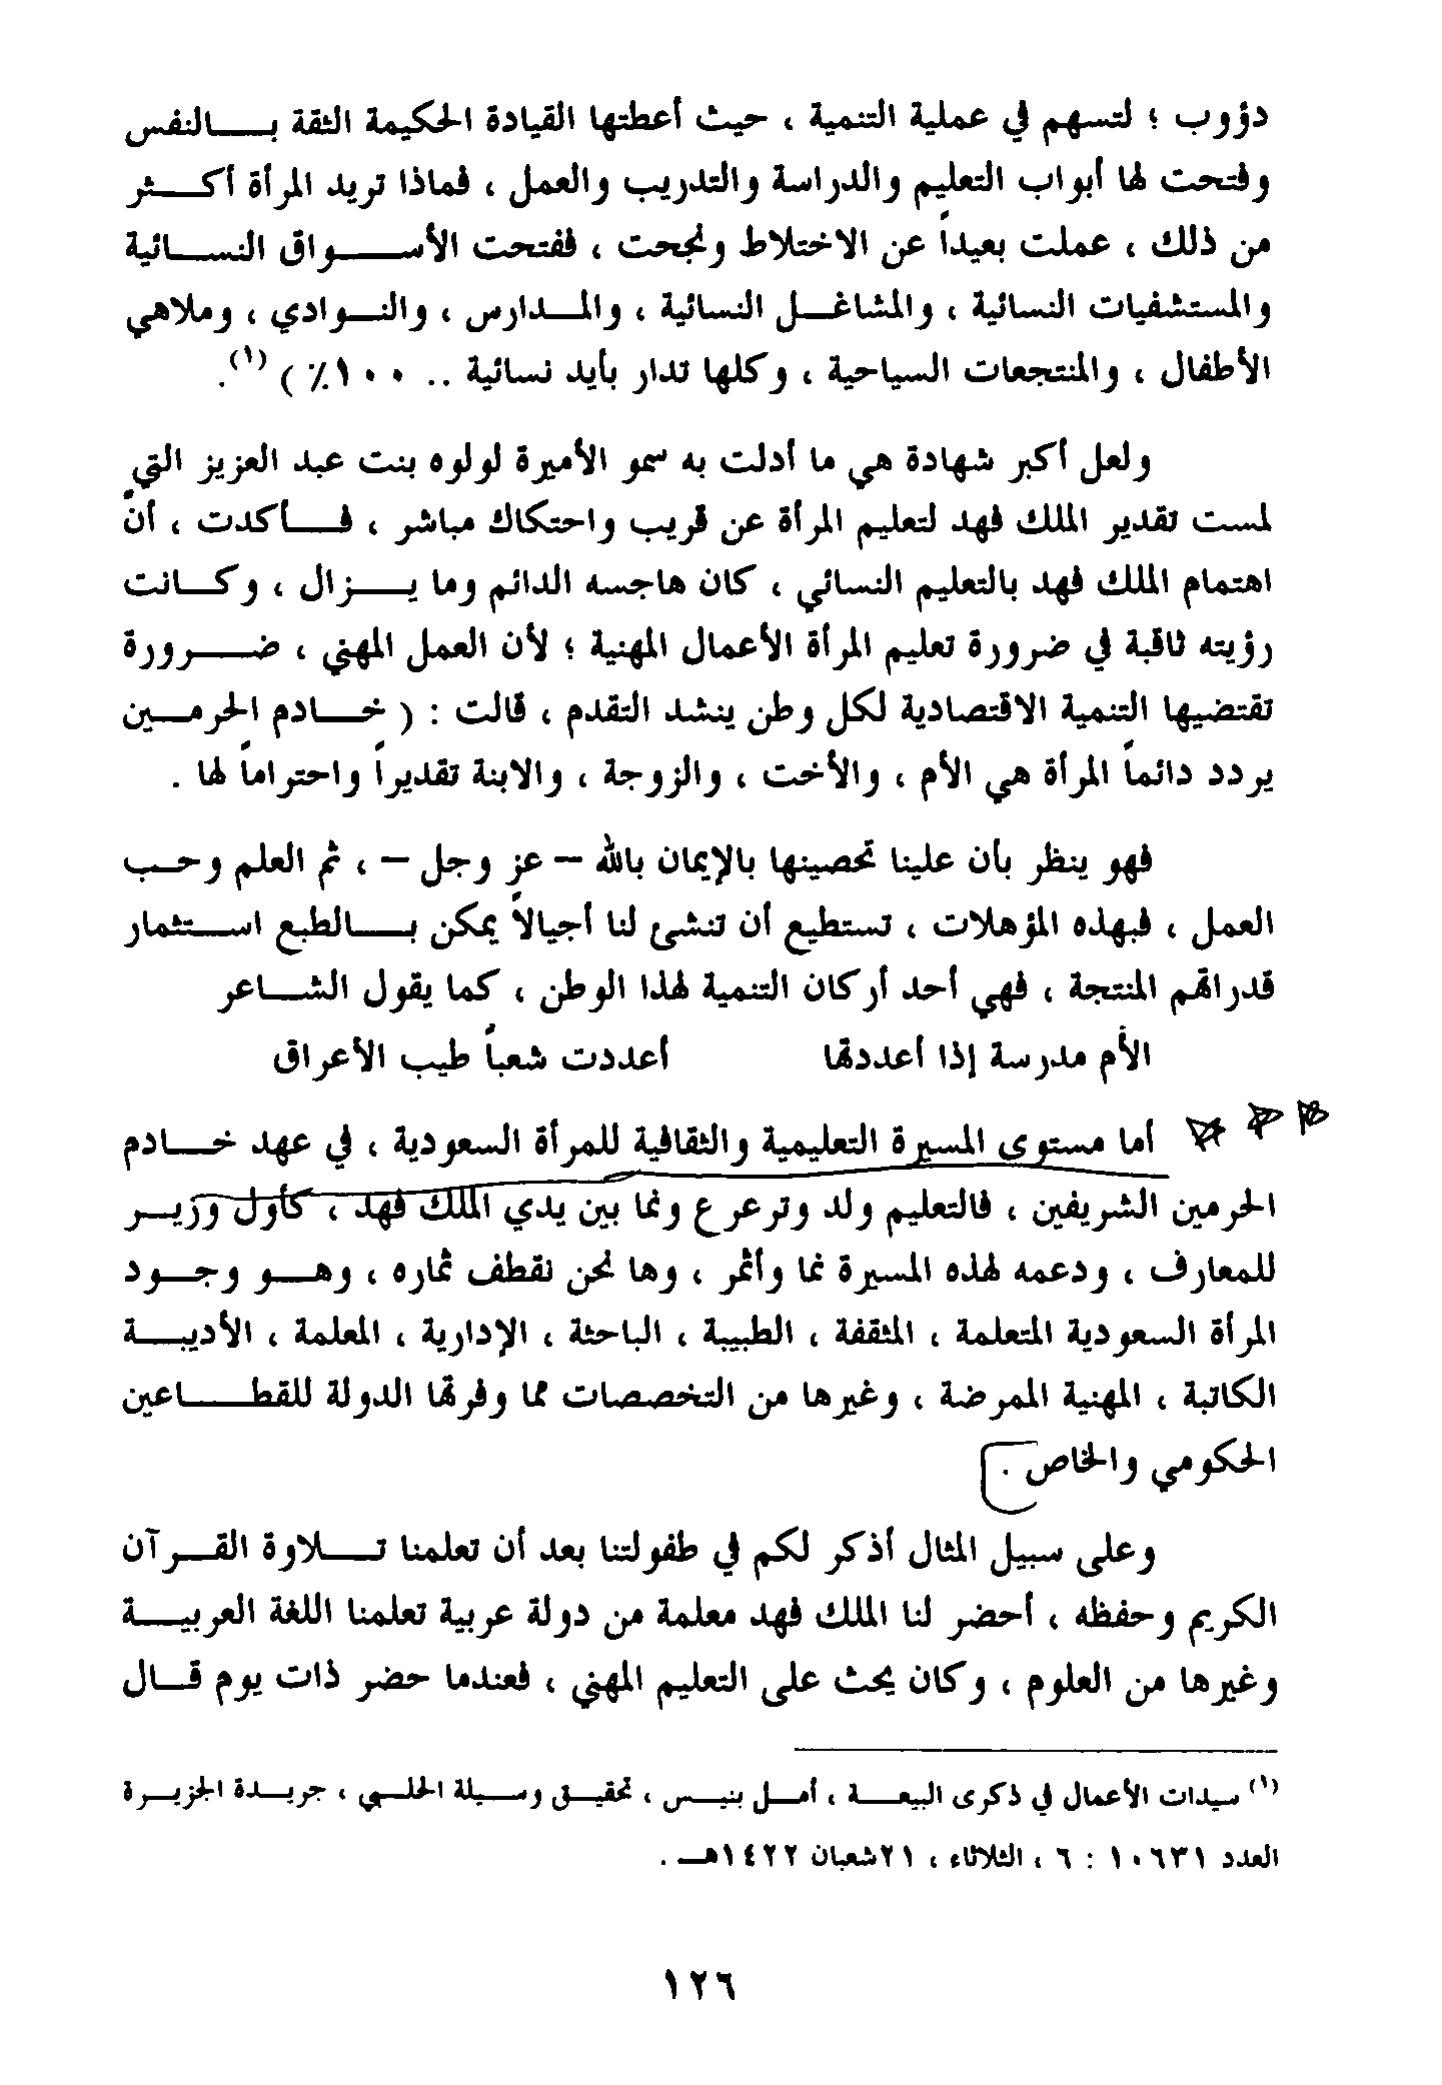 دؤوب ؛ لتسهم في عملية التنمية ، حيث أعطتها القيادة الحكيمة الثقة بالنفس
وفتحت لها أبواب التعليم والدراسة والتدريب والعمل ، فماذا تريد المرأة أكثر
من ذلك ، عملت بعيداً عن الاختلاط ونجحت ، ففتحت الأسواق النسائية
والمستشفيات النسائية ، والمشاغل النسائية ، والمدارس ، والنوادي ، وملاهي
الأطفال ، والمنتجعات السياحية ، وكلها تدار بأيد نسائية .. ١٠٠٪ ) (١).
ولعل أكبر شهادة هي ما أدلت به سمو الأميرة لولوه بنت عبد العزيز التي
لمست تقدير الملك فهد لتعليم المرأة عن قريب واحتكاك مباشر ، فأكدت ، أنّ
اهتمام الملك فهد بالتعليم النسائي ، كان هاجسه الدائم وما يزال ، وكانت
رؤيته ثاقبة في ضرورة تعليم المرأة الأعمال المهنية ؛ لأن العمل المهني ، ضرورة
تقتضيها التنمية الاقتصادية لكل وطن ينشد التقدم ، قالت : ( خادم الحرمين
يردد دائماً المرأة هي الأم ، والأخت ، والزوجة ، والابنة تقديراً واحتراماً لها .
فهو ينظر بأن علينا تحصينها بالإيمان بالله – عز وجل – ، ثم العلم وحب
العمل ، فبهذه المؤهلات ، تستطيع أن تنشئ لنا أجيالاً يمكن بالطبع استثمار
قدراتهم المنتجة ، فهي أحد أركان التنمية لهذا الوطن ، كما يقول الشاعر
الأم مدرسة إذا أعددتها أعددت شعباً طيب الأعراق
أما مستوى المسيرة التعليمية والثقافية للمرأة السعودية ، في عهد خادم
الحرمين الشريفين ، فالتعليم ولد وترعرع ونما بين يدي الملك فهد ، كأول وزير
للمعارف ، ودعمه لهذه المسيرة نما وأثمر ، وها نحن نقطف ثماره ، وهو وجود
المرأة السعودية المتعلمة ، المثقفة ، الطبيبة ، الباحثة ، الإدارية ، المعلمة ، الأديبة
الكاتبة ، المهنية الممرضة ، وغيرها من التخصصات مما وفرتها الدولة للقطاعين
الحكومي والخاص .
وعلى سبيل المثال أذكر لكم في طفولتنا بعد أن تعلمنا تلاوة القرآن
الكريم وحفظه ، أحضر لنا الملك فهد معلمة من دولة عربية تعلمنا اللغة العربية
وغيرها من العلوم ، وكان يحث على التعليم المهني ، فعندما حضر ذات يوم قال
(١) سيدات الأعمال في ذكرى البيعة ، أمل بنيس ، تحقيق وسيلة الحلبي ، جريدة الجزيرة
العدد ١٠٦٣١ : ٦ ، الثلاثاء ، ٢١شعبان ١٤٢٢هـ .
١٢٦